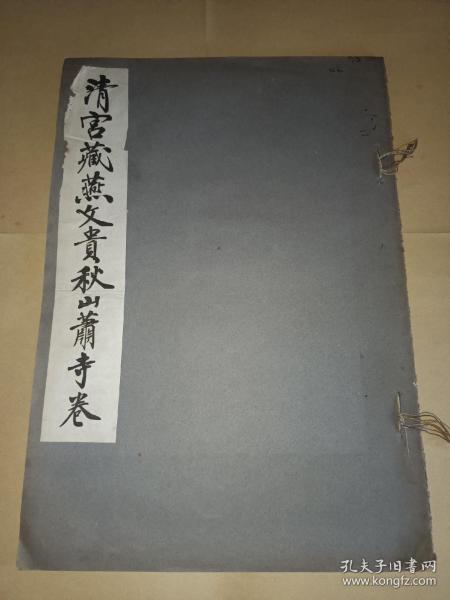 清宮藏燕文貴秋山蕭寺卷
孔夫子旧书网
www.kongfz.com